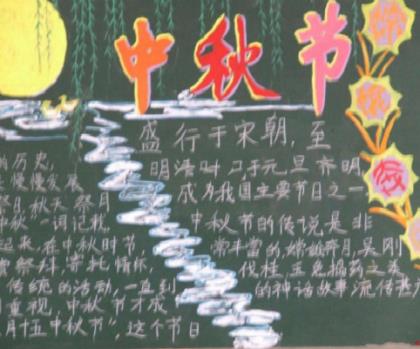 中秋节
的历史,
慢慢发展
祭月 秋天祭月
中秋"一词记载,
起来,在中秋时节,
祭拜,寄托情怀,
传统的活动,一直到
重视,中秋节才成
月十五中秋节",这个节日
盛行于宋朝,至
明清时,已于元旦齐明,
成为我国主要节日之一
中秋节的传说是非
常丰富的,嫦娥奔月,吴刚
伐桂,玉兔捣药之类
的神话故事流传甚